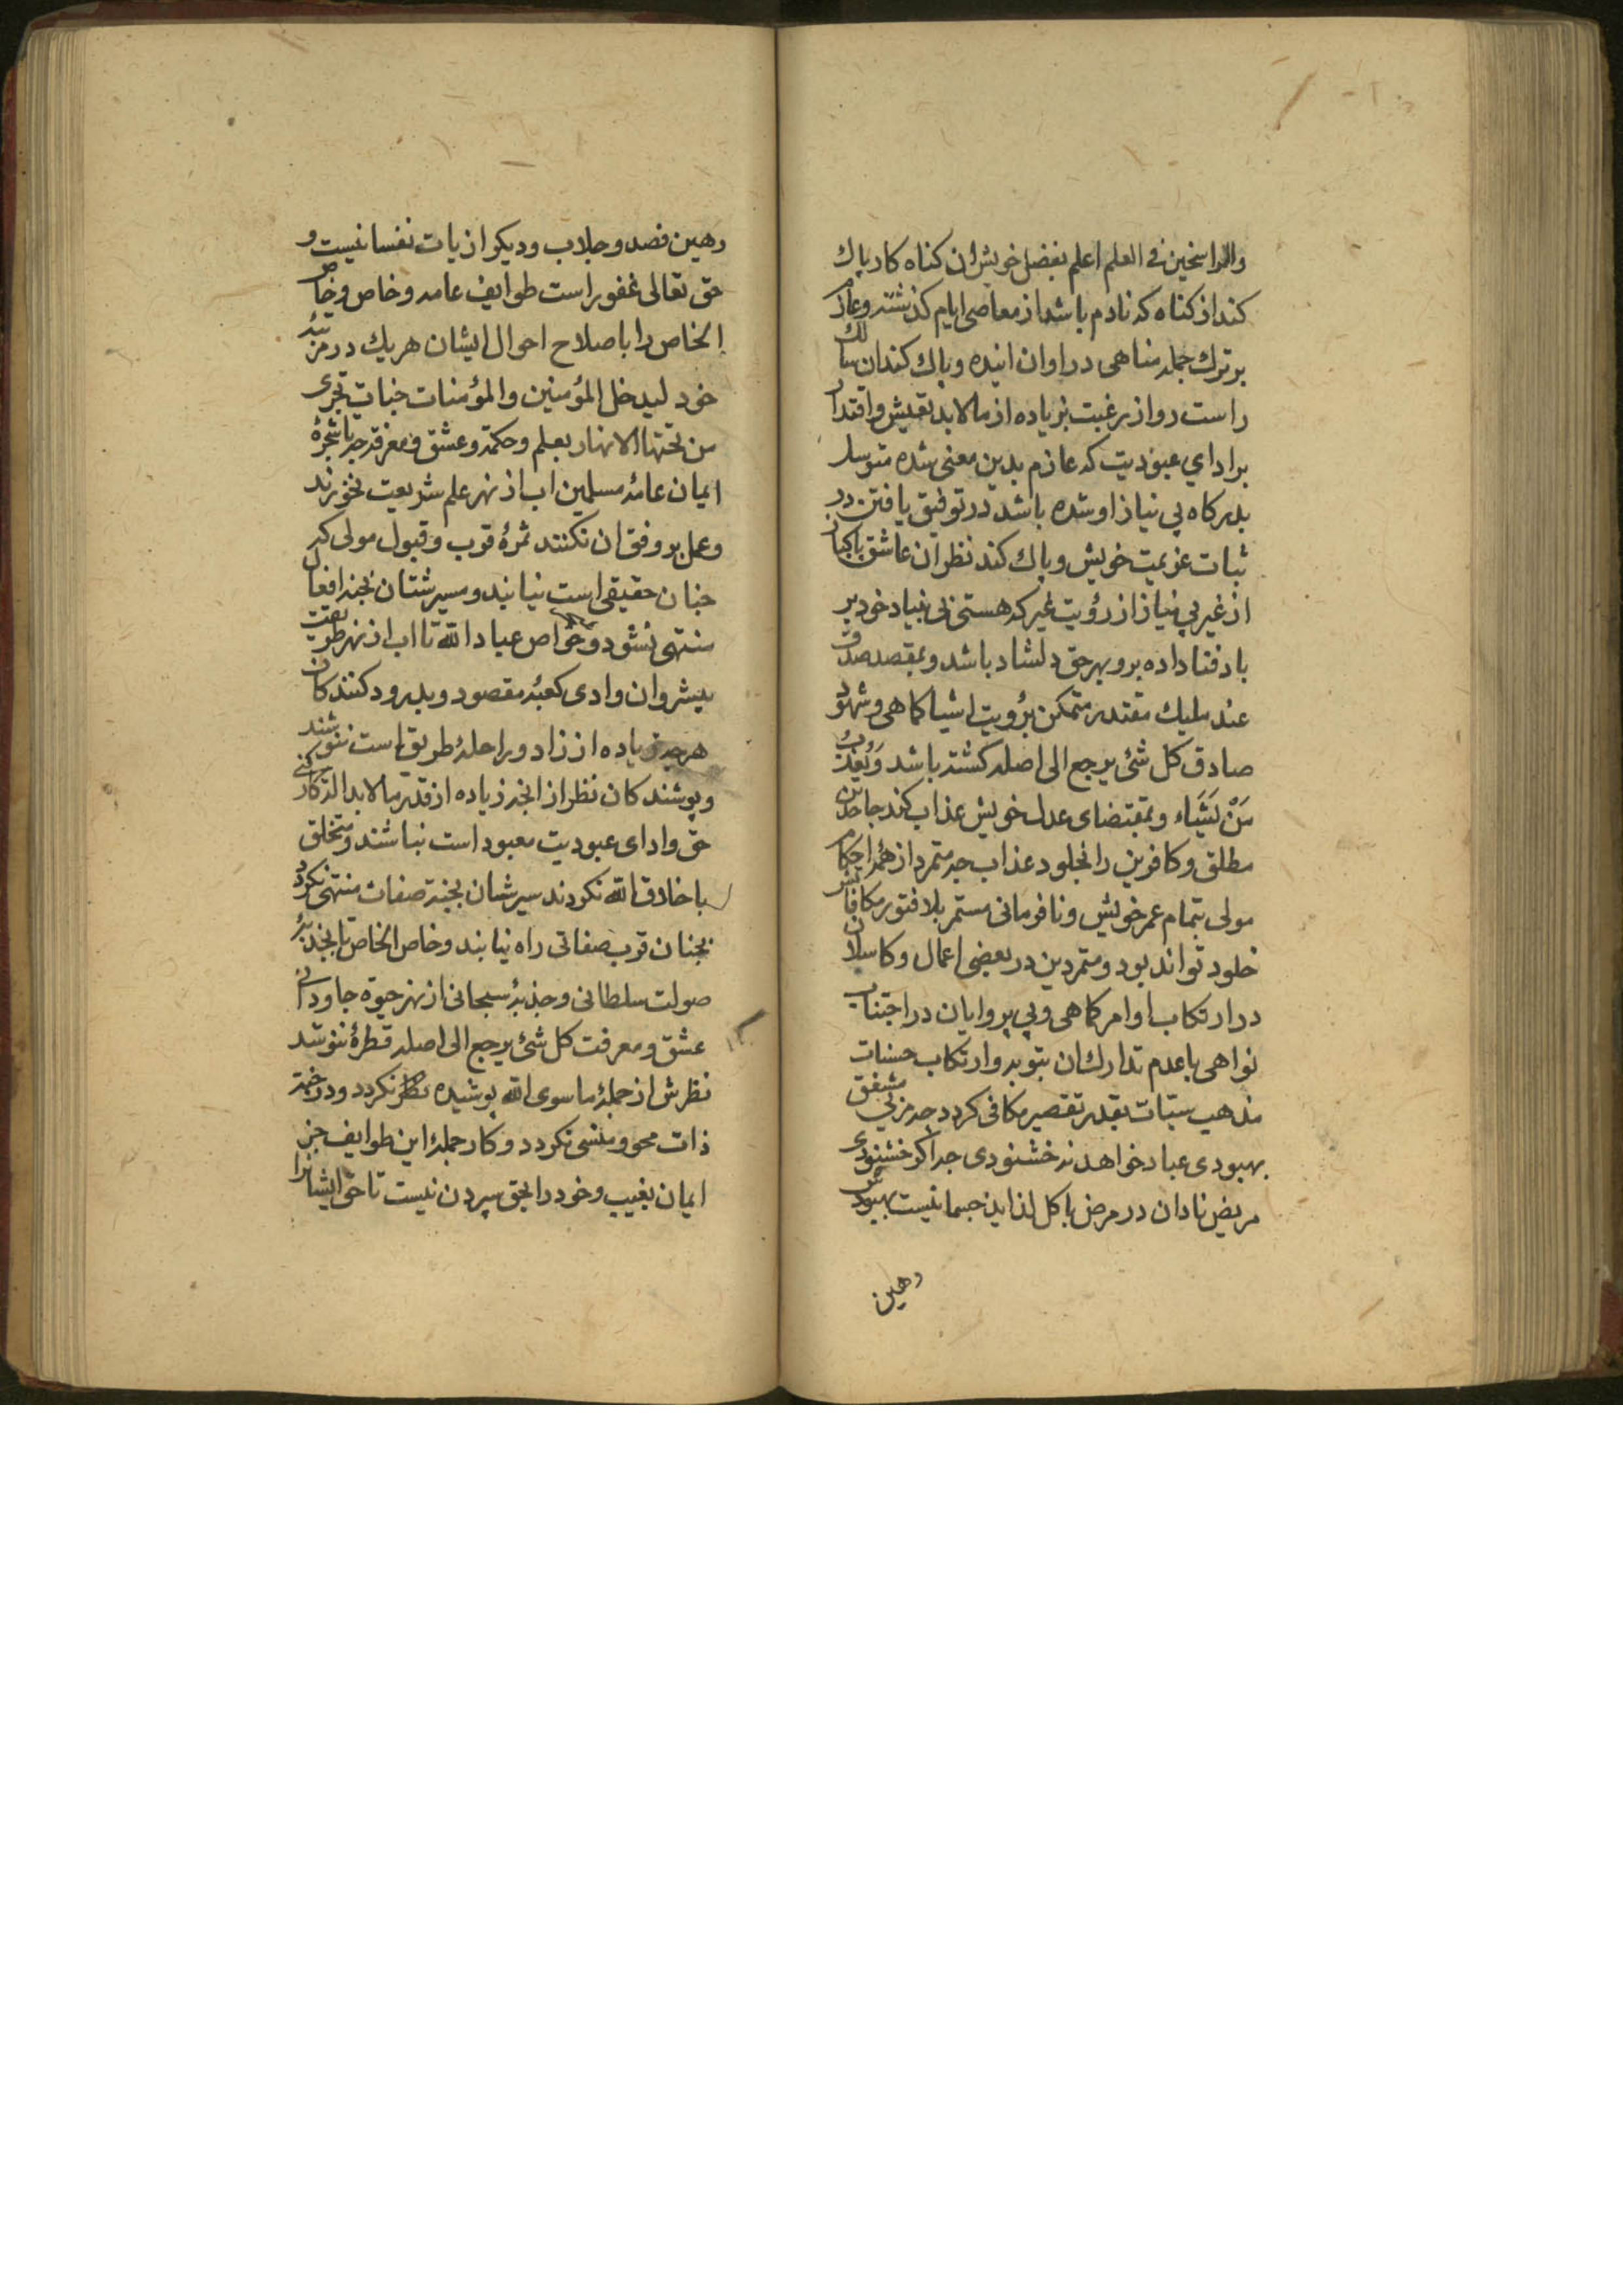 والراسخین فی العلم اعلم بفضل خویش ان کناه کار پاك
کند از کناه که نادم باشد از معاصی ایام کذشته وعازم
بر ترك جمله مناهی در اوان اینده و پاك کند ان سالك
راست رو از رغبت بزیاده از مالابد تعیش واقتدار
بر ادای عبودیت که عازم بدین معنی شده متوسل
بدرکاه بی نیاز او شده باشد در توفیق یافتن در
ثبات عزیمت خویش و پاك کند نظر ان عاشق پاکباز
از غیر بی نیاز از رؤیت غیر که هستی بی بنیاد خود بر
باد فنا داده بر و بهر حق دلشاد باشد و بمقصد صدق
عند ملیك مقتدر متمکن برؤیت اشیا کماهی وشهود
صادق کل شئ یرجع الی اصله کشته باشد وَیُعَذِّبُ
مَنْ یَشَاء وبمقتضای عدل خویش عذاب کند جاحدین
مطلق وکافرین را بخلود عذاب چه متمرد از همه احکام
مولی بتمام عمر خویش ونافرمانی مستمر بلا فتور مکافاتش
خلود تواند بود ومتمردین در بعضی اعمال وکاسلان
در ارتکاب اوامر کماهی وبی پروایان در اجتناب
نواهی با عدم تدارك ان بتوبه وارتکاب حسنات
مذهب سیّات بقدر تقصیر مکافی کردد چه مربی مشفق
بهبودی عباد خواهد نه خشنودی چه اکر خشنودی
مریض نادان در مرض باکل لذاید جسمانیست بهبودش
رهین
رهین فصد وجلاب ودیکر اذیات نفسانیست و
حق تعالی غفور است طوایف عامه وخاص وخاص
الخاص را باصلاح احوال ایشان هریك در مرتبهٔ
خود لیدخل المؤمنین والمؤمنات جنات تجری
من تحتها الانهار بعلم وحکمة وعشق ومعرفة چه تا شجرهٔ
ایمان عامهٔ مسلمین اب از نهر علم شریعت نخورند
وعمل بر وفق ان نکنند ثمرهٔ قرب وقبول مولی که
جنان حقیقی است نیابند و سیرشان بجنه افعال
منتهی نشود وخواص عباد الله تا اب از نهر طریقت
پیشروان وادی کعبهٔ مقصود و بدرود کنندکان
هرچه زیاده از زاد وراحلهٔ طریق است ننوشند
وپوشندکان نظر از انچه زیاده از قدر مالابد
حق وادای عبودیت معبود است نباشند ومتخلق
باخلاق الله نکردند سیرشان بجنهٔ صفات منتهی نکردد
بجنان قرب صفاتی راه نیابند وخاص الخاص تا بجذبهٔ
صولت سلطانی وجذبهٔ سبحانی از نهر حیوة جاودانی
عشق ومعرفت کل شئ یرجع الی اصله قطرهٔ ننوشد
نظرش از جملهٔ ما سوی الله پوشیده نکردد ودر جنة
ذات محو ومنسی نکردد وکار جملهٔ این طوایف جز
ایمان بغیب وخود را بحق سپردن نیست تا حق ایشانرا